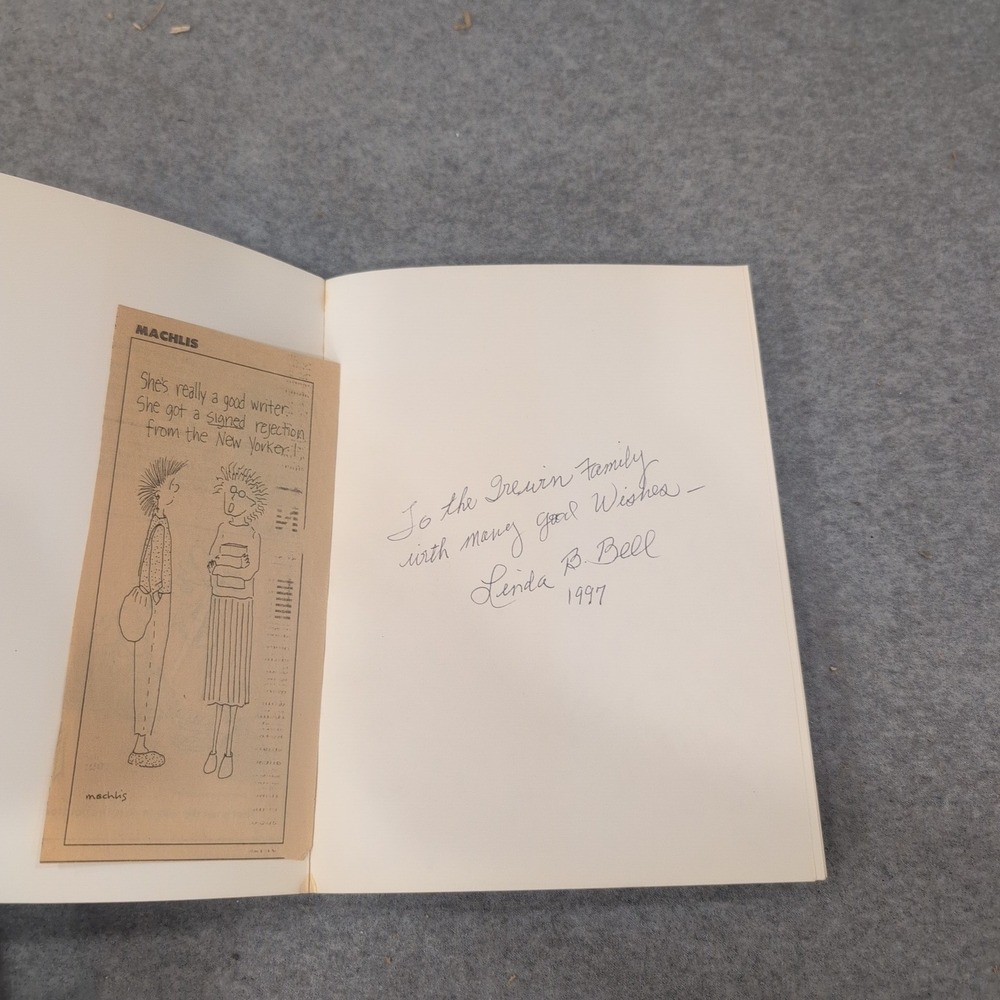 MACHLIS
She's really a good writer.
She got a signed rejection
from the New Yorker!
machlis
To the Irewin Family
with many good Wishes —
Linda B. Bell
1997